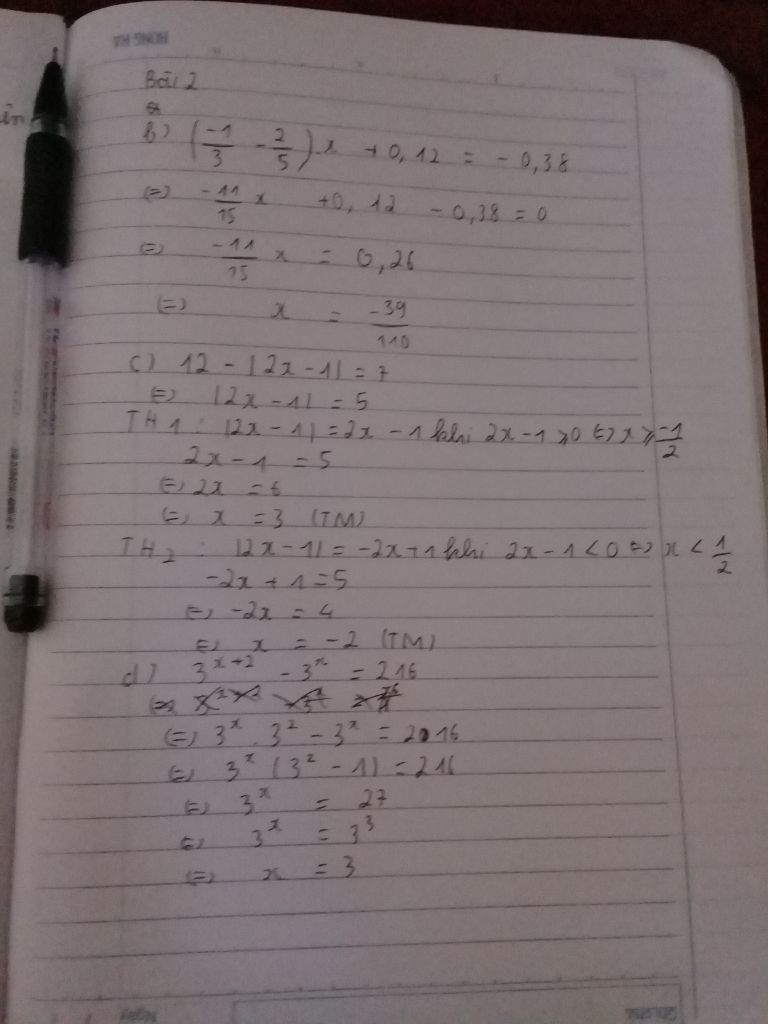 HONG HA
Bài 2
b) (-1/3 - 2/5).x + 0,12 = - 0,38
(=) -11/15 x + 0, 12 - 0,38 = 0
(=) -11/15 x = 0,26
(=) x = -39/110
c) 12 - |2x - 1| = 7
(=) |2x - 1| = 5
TH1 : |2x - 1| = 2x - 1 khi 2x - 1 ⩾ 0 (=) x ⩾ -1/2
2x - 1 = 5
(=) 2x = 6
(=) x = 3 (TM)
TH2 : |2x - 1| = -2x + 1 khi 2x - 1 < 0 (=) x < 1/2
-2x + 1 = 5
(=) -2x = 4
(=) x = -2 (TM)
d) 3^x+2 - 3^x = 216
(=) 3^x . 3^2 - 3^x = 2016
(=) 3^x (3^2 - 1) = 216
(=) 3^x = 27
(=) 3^x = 3^3
(=) x = 3
Ngày